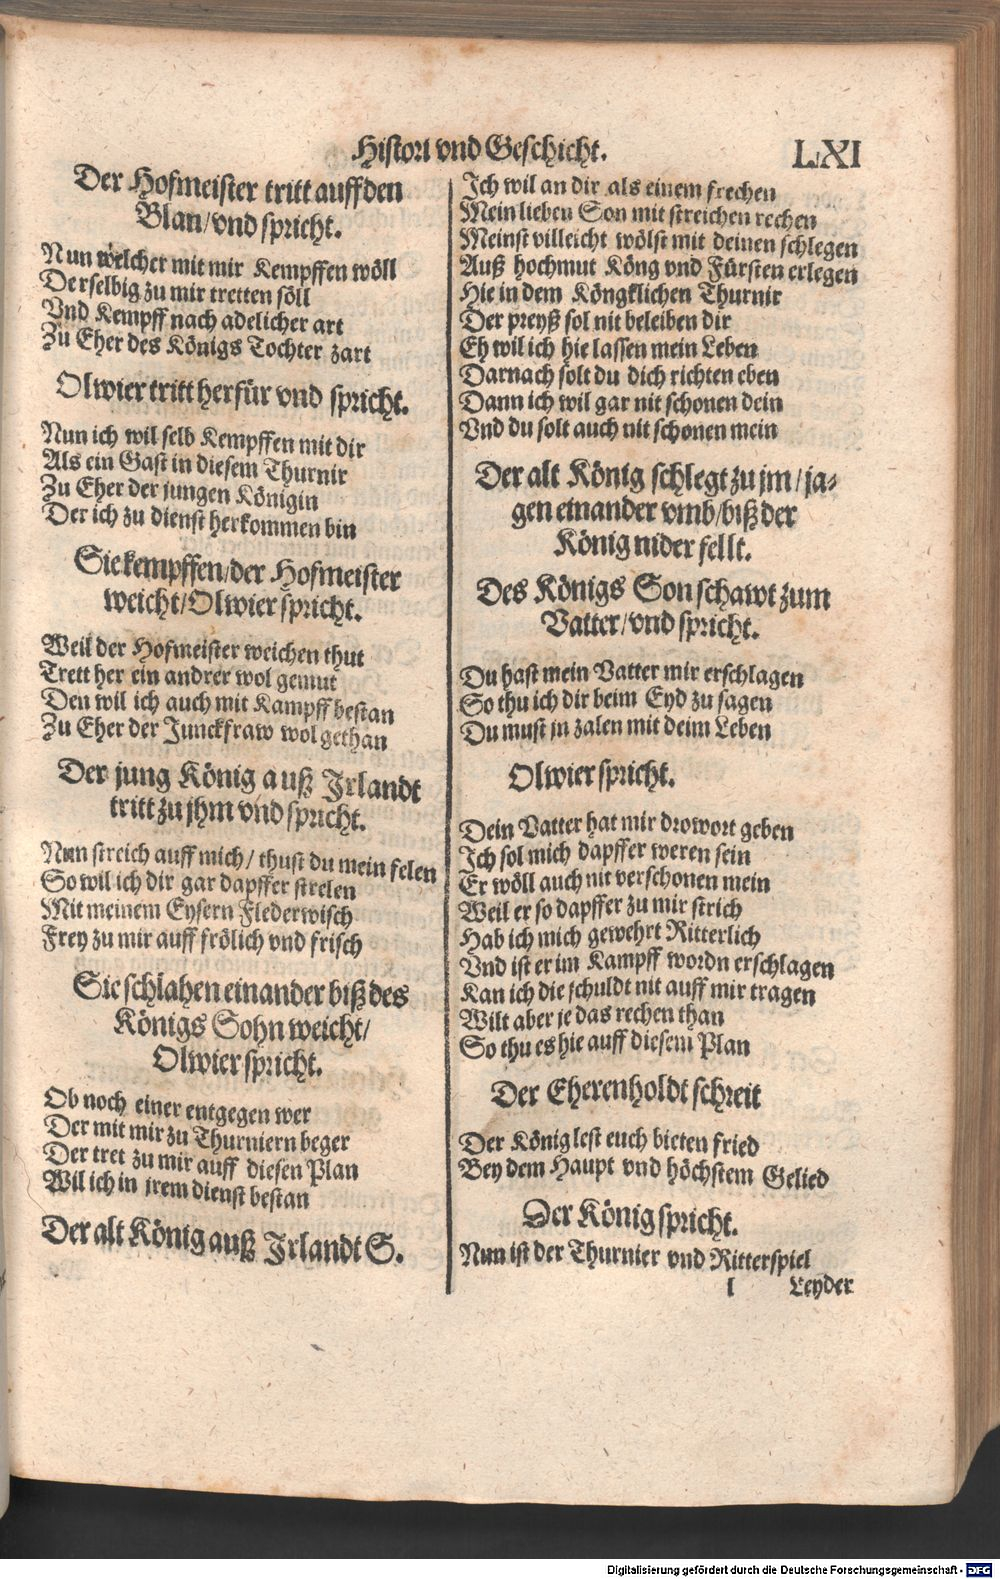 Histori vnd Geschicht.
LXI
Der Hofmeister tritt auff den
Blan/vnd spricht.
Nun welcher mit mir Kempffen wöll
Derselbig zu mir tretten söll
Vnd Kempff nach adelicher art
Zu Eher des Königs Tochter zart
Olwier tritt herfür vnd spricht.
Nun ich wil selb Kempffen mit dir
Als ein Gast in diesem Thurnir
Zu Eher der jungen Königin
Der ich zu dienst herkommen bin
Sie kempffen/der Hofmeister
weicht/Olwier spricht.
Weil der Hofmeister weichen thut
Trett her ein andrer wol gemut
Den wil ich auch mit Kampff bestan
Zu Eher der Junckfraw wol gethan
Der jung König auß Irlandt
tritt zu jhm vnd spricht.
Nun streich auff mich/ thust du mein felen
So wil ich dir gar dapffer strelen
Mit meinem Eysern Flederwisch
Frey zu mir auff frölich vnd frisch
Sie schlahen einander biß des
Königs Sohn weicht/
Olwier spricht.
Ob noch einer entgegen wer
Der mit mir zu Thurniern beger
Der tret zu mir auff diesen Plan
Wil ich in jrem dienst bestan
Der alt König auß Irlandt S.
Ich wil an dir als einem frechen
Mein lieben Son mit streichen rechen
Meinst villeicht wölst mit deinen schlegen
Auß hochmut Köng vnd Fürsten erlegen
Hie in dem Köngklichen Thurnir
Der preyß sol nit beleiben dir
Eh wil ich hie lassen mein Leben
Darnach solt du dich richten eben
Dann ich wil gar nit schonen dein
Vnd du solt auch nit schonen mein
Der alt König schlegt zu jm/ja-
gen einander vmb/biß der
König nider fellt.
Des Königs Son schawt zum
Vatter/vnd spricht.
Du hast mein Vatter mir erschlagen
So thu ich dir beim Eyd zu sagen
Du must jn zalen mit deim Leben
Olwier spricht.
Dein Vatter hat mir drowort geben
Ich sol mich dapffer weren sein
Er wöll auch nit verschonen mein
Weil er so dapffer zu mir strich
Hab ich mich gewehrt Ritterlich
Vnd ist er im Kampff wordn erschlagen
Kan ich die schuldt nit auff mir tragen
Wilt aber je das rechen than
So thu es hie auff diesem Plan
Der Eherenholdt schreit
Der König lest euch bieten fried
Bey dem Haupt vnd höchstem Gelied
Der König spricht.
Nun ist der Thurnier vnd Ritterspiel
l Leyder
Digitalisierung gefördert durch die Deutsche Forschungsgemeinschaft - DFG